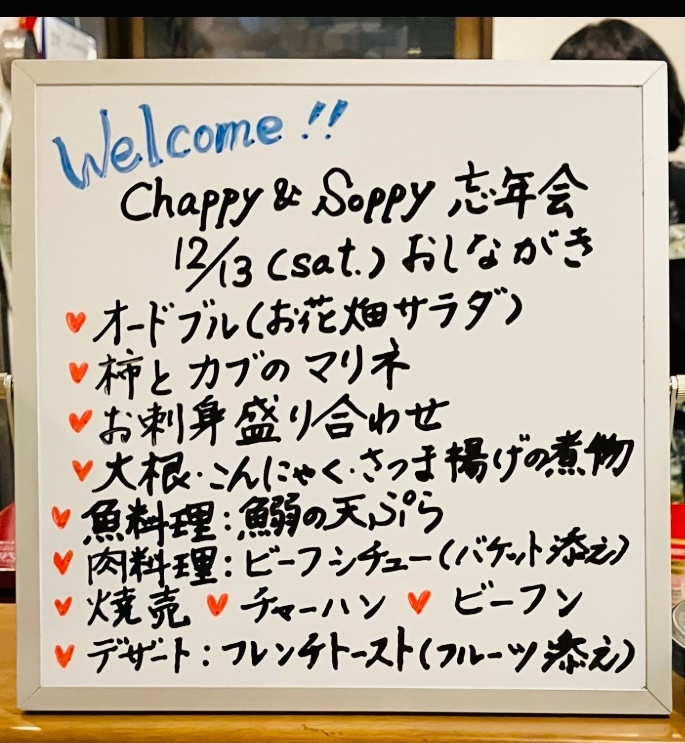 Welcome!!
Chappy & Soppy 忘年会
12/13 (sat.) おしながき
♥ オードブル(お花畑サラダ)
♥ 柿とカブのマリネ
♥ お刺身盛り合わせ
♥ 大根・こんにゃく・さつま揚げの煮物
♥ 魚料理:鰯の天ぷら
♥ 肉料理:ビーフシチュー(バケット添え)
♥ 焼売 ♥ チャーハン ♥ ビーフン
♥ デザート:フレンチトースト(フルーツ添え)